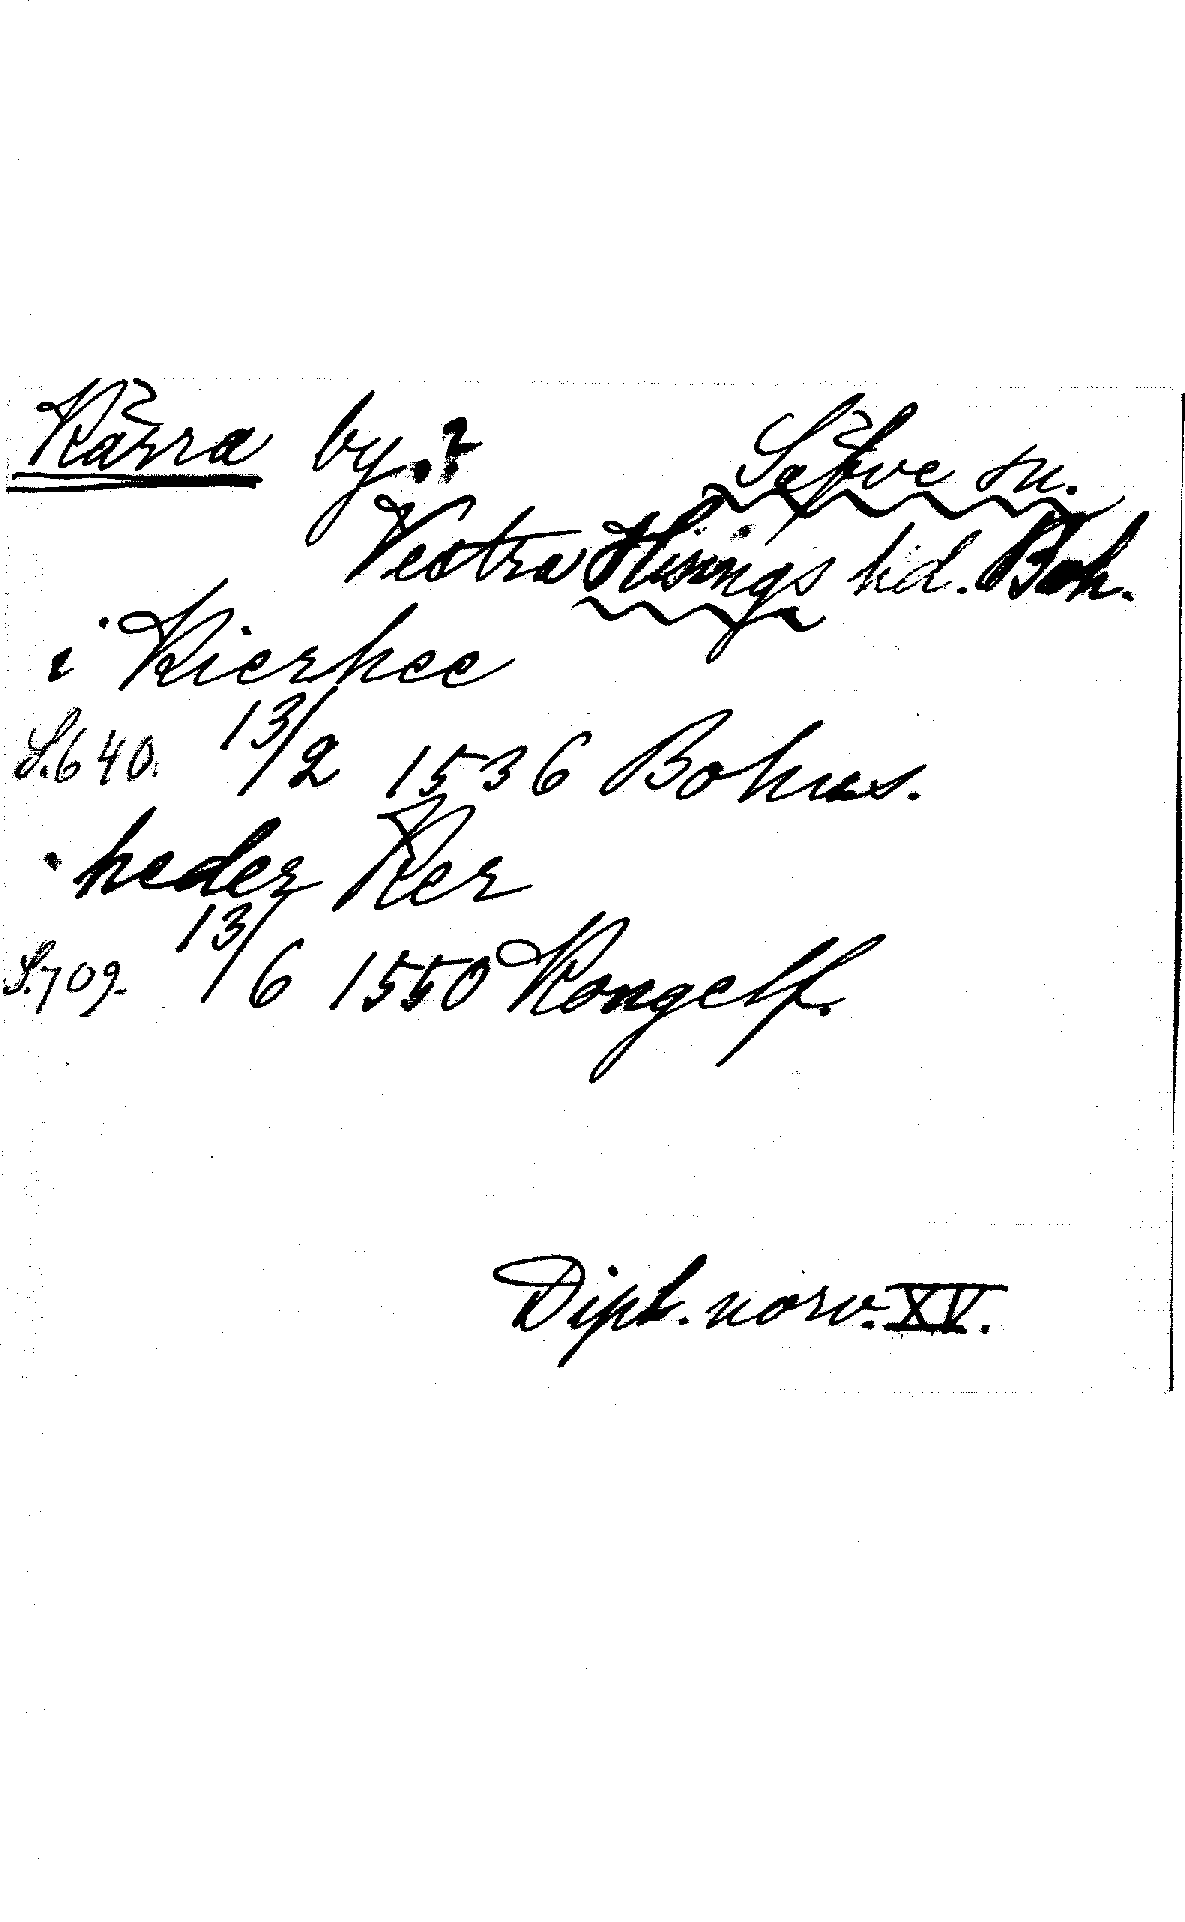 Kärra by.?
Säfve sn.
Vestra Hisings hd. Boh.
i Kierhee
S.640. 13/2 1536 Bohus.
heder Ker
S.709. 13/6 1550 Kongelf.
Dipl. norv. XV.